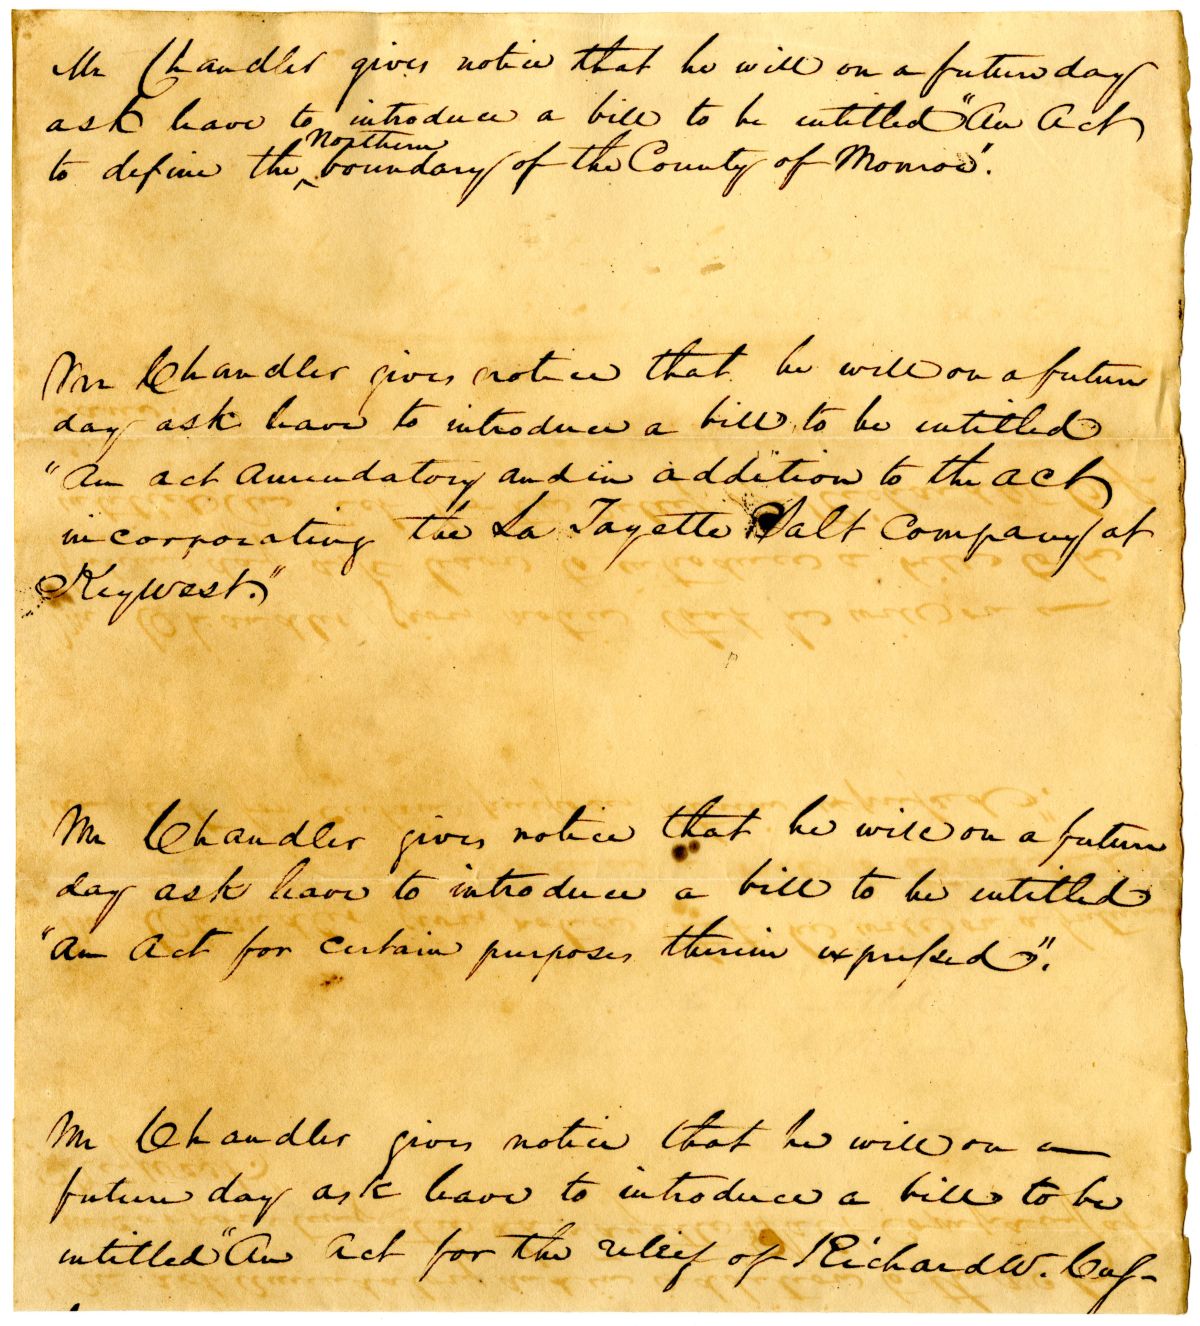 Mr Chandler gives notice that he will on a future day
ask leave to introduce a bill to be entitled "An Act
to define the Northern boundary of the County of Monroe".
Mr Chandler gives notice that he will on a future
day ask leave to introduce a bill to be entitled
"An act amendatory and in addition to the act
incorporating the La Fayette Salt Company at
Key West."
Mr Chandler gives notice that he will on a future
day ask leave to introduce a bill to be entitled
"An Act for certain purposes therein expressed".
Mr Chandler gives notice that he will on a
future day ask leave to introduce a bill to be
entitled "An Act for the relief of Richard W.